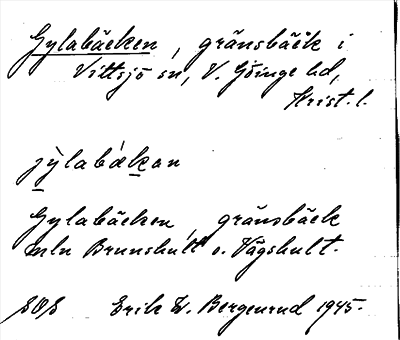 Gylabäcken, gränsbäck i
Vittsjö sn, V. Göinge hd,
Krist. l.
jỳlabǽkan
Gylabäcken, gränsbäck
mln Brunshult o. Vägshult.
SOS Erik W. Bergenrud 1945.